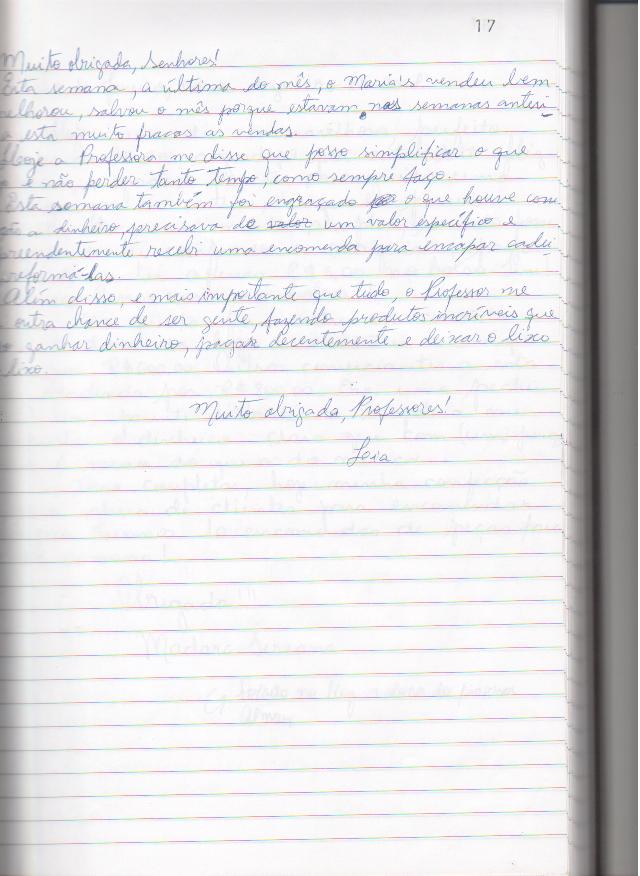 17
Muito obrigada, Senhores!
Esta semana, a última do mês, o Maria's vendeu bem
elhorou, salvou o mês porque estavam nas semanas anteri-
a esta muito fracas as vendas.
Hoje a Professora me disse que posso simplificar o que
e não perder tanto tempo, como sempre faço.
Esta semana também foi engraçado o que houve com
ção a dinheiro, precisava de valor um valor específico e
preendentemente recebi uma encomenda para encapar cadei-
reformá-las.
Além disso, e mais importante que tudo, o Professor me
outra chance de ser gente, fazendo produtos incríveis que
ganhar dinheiro, pagar decentemente e deixar o lixo
lixo.
Muito obrigada, Professores!